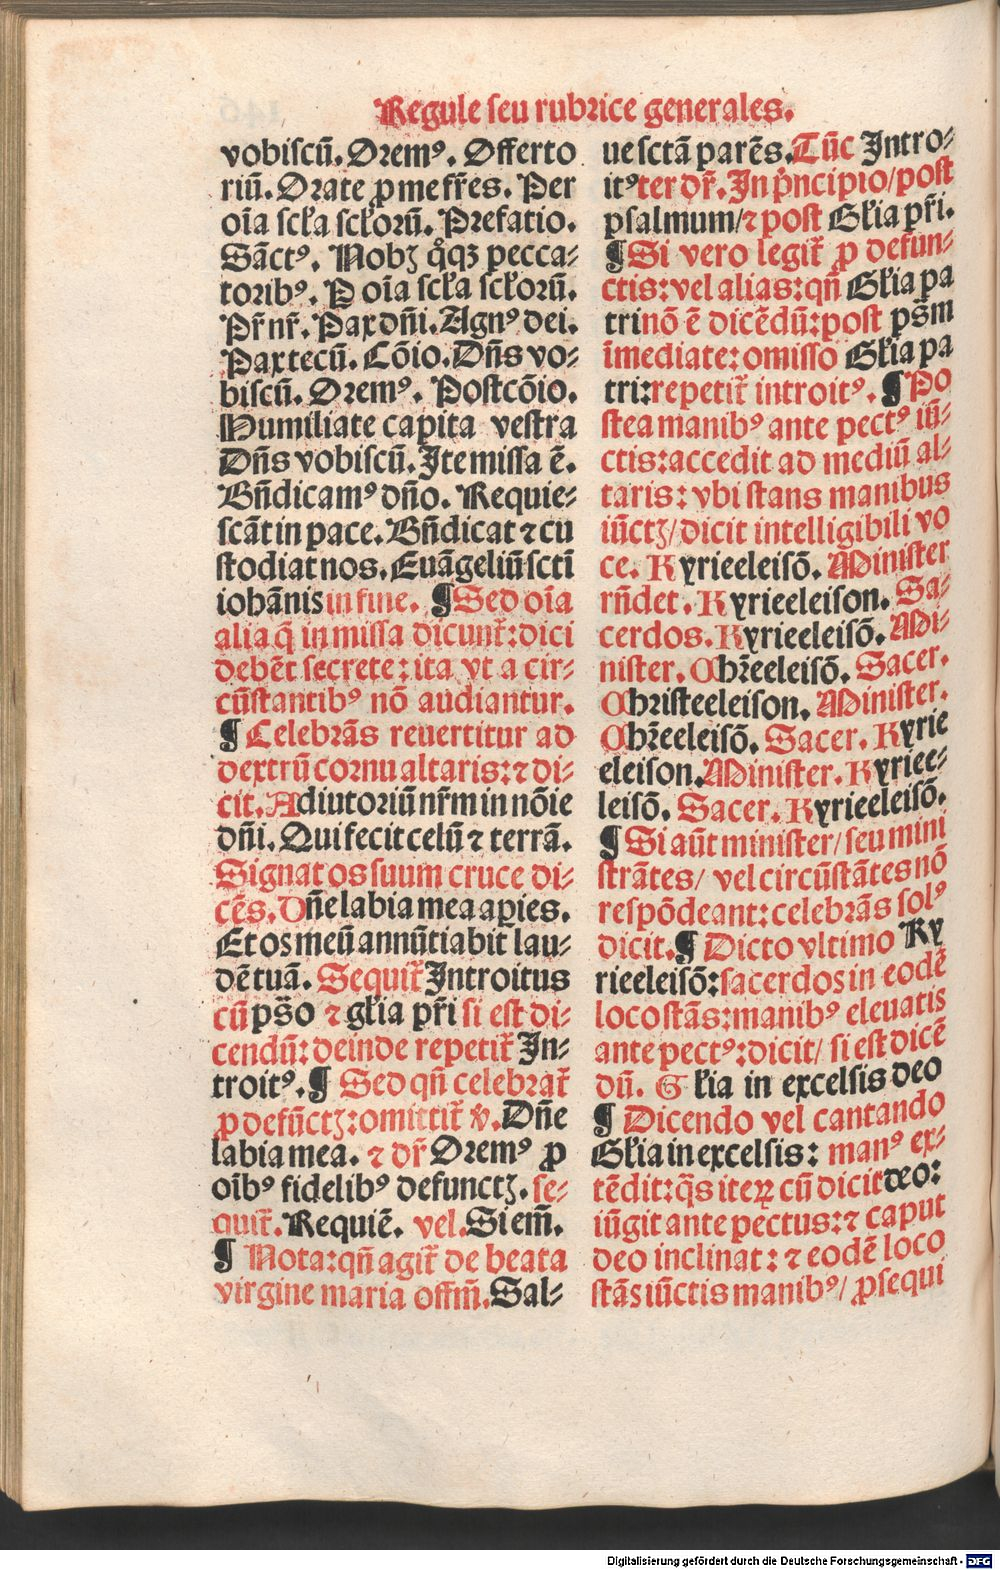 Regule seu rubrice generales.
vobiscū. Oremꝰ. Offerto
riū. Orate ꝓ me fr̄es. Per
oīa scl̄a scl̄orū. Prefatio.
Sāctꝰ. Nobꝫ qͦqꝫ pecca⸗
toribꝰ. P oīa scl̄a scl̄orū.
Pr̄ nr̄. Pax dn̄i. Agnꝰ dei.
Pax tecū. Cōio. Dn̄s vo⸗
biscū. Oremꝰ. Postcōio.
Humiliate capita vestra
Dn̄s vobiscū. Ite missa ē.
Bn̄dicamꝰ dn̄o. Requie⸗
scāt in pace. Bn̄dicat ⁊ cu
stodiat nos. Euāgeliū scti
iohānis in fine. ¶ Sed oīa
alia q̄ in missa dicunt̄: dici
debēt secrete: ita vt a cir⸗
cūstantibꝰ nō audiantur.
¶ Celebrās reuertitur ad
dextrū cornu altaris: ⁊ di⸗
cit. Adiutoriū nr̄m in nōie
dn̄i. Qui fecit celū ⁊ terrā.
Signat os suum cruce di⸗
cēs. Dn̄e labia mea apies.
Et os meū annūtiabit lau⸗
dē tuā. Sequit̄ Introitus
cū pso ⁊ gl̄ia pr̄i si est di⸗
cendū: deinde repetit̄ In⸗
troitꝰ. ¶ Sed qn̄ celebrat̄
ꝓ defūctꝫ: omittit̄ ℣. Dn̄e
labia mea. ⁊ dr̄ Oremꝰ ꝓ
oībꝰ fidelibꝰ defunctꝫ. se⸗
quit̄. Requiē. vel. Si em̄.
¶ Nota: qn̄ agit̄ de beata
virgine maria offm̄. Sal⸗
ue sctā parēs. Tūc Intro⸗
itꝰ ter dr̄. In pͥncipio/ post
psalmum/ ⁊ post Gl̄ia pr̄i.
¶ Si vero legit̄ ꝓ defun⸗
ctis: vel alias: qn̄ Gl̄ia pa
tri nō ē dicēdū: post ps̄m
īmediate: omisso Gl̄ia pa
tri: repetit̄ introitꝰ. ¶ Po
stea manibꝰ ante pectꝰ iū⸗
ctis: accedit ad mediū al⸗
taris: vbi stans manibus
iūctꝫ/ dicit intelligibili vo
ce. Kyrieeleisō. Minister
rn̄det. Kyrieeleison. Sa⸗
cerdos. Kyrieeleisō. Mi⸗
nister. Chr̄eeleisō. Sacer.
Christeeleison. Minister.
Chr̄eeleisō. Sacer. Kyrie
eleison. Minister. Kyriee⸗
leisō. Sacer. Kyrieeleisō.
¶ Si aūt minister/ seu mini
strātes/ vel circūstātes nō
respōdeant: celebrās solꝰ
dicit. ¶ Dicto vltimo Ky
rieeleisō: sacerdos in eodē
loco stās: manibꝰ eleuatis
ante pectꝰ: dicit/ si est dicē
dū. Gl̄ia in excelsis deo
¶ Dicendo vel cantando
Gl̄ia in excelsis: manꝰ ex⸗
tēdit: q̄s iteꝝ cū dicit deo:
iūgit ante pectus: ⁊ caput
deo inclinat: ⁊ eodē loco
stās iūctis manibꝰ/ ꝓsequi
Digitalisierung gefördert durch die Deutsche Forschungsgemeinschaft - DFG